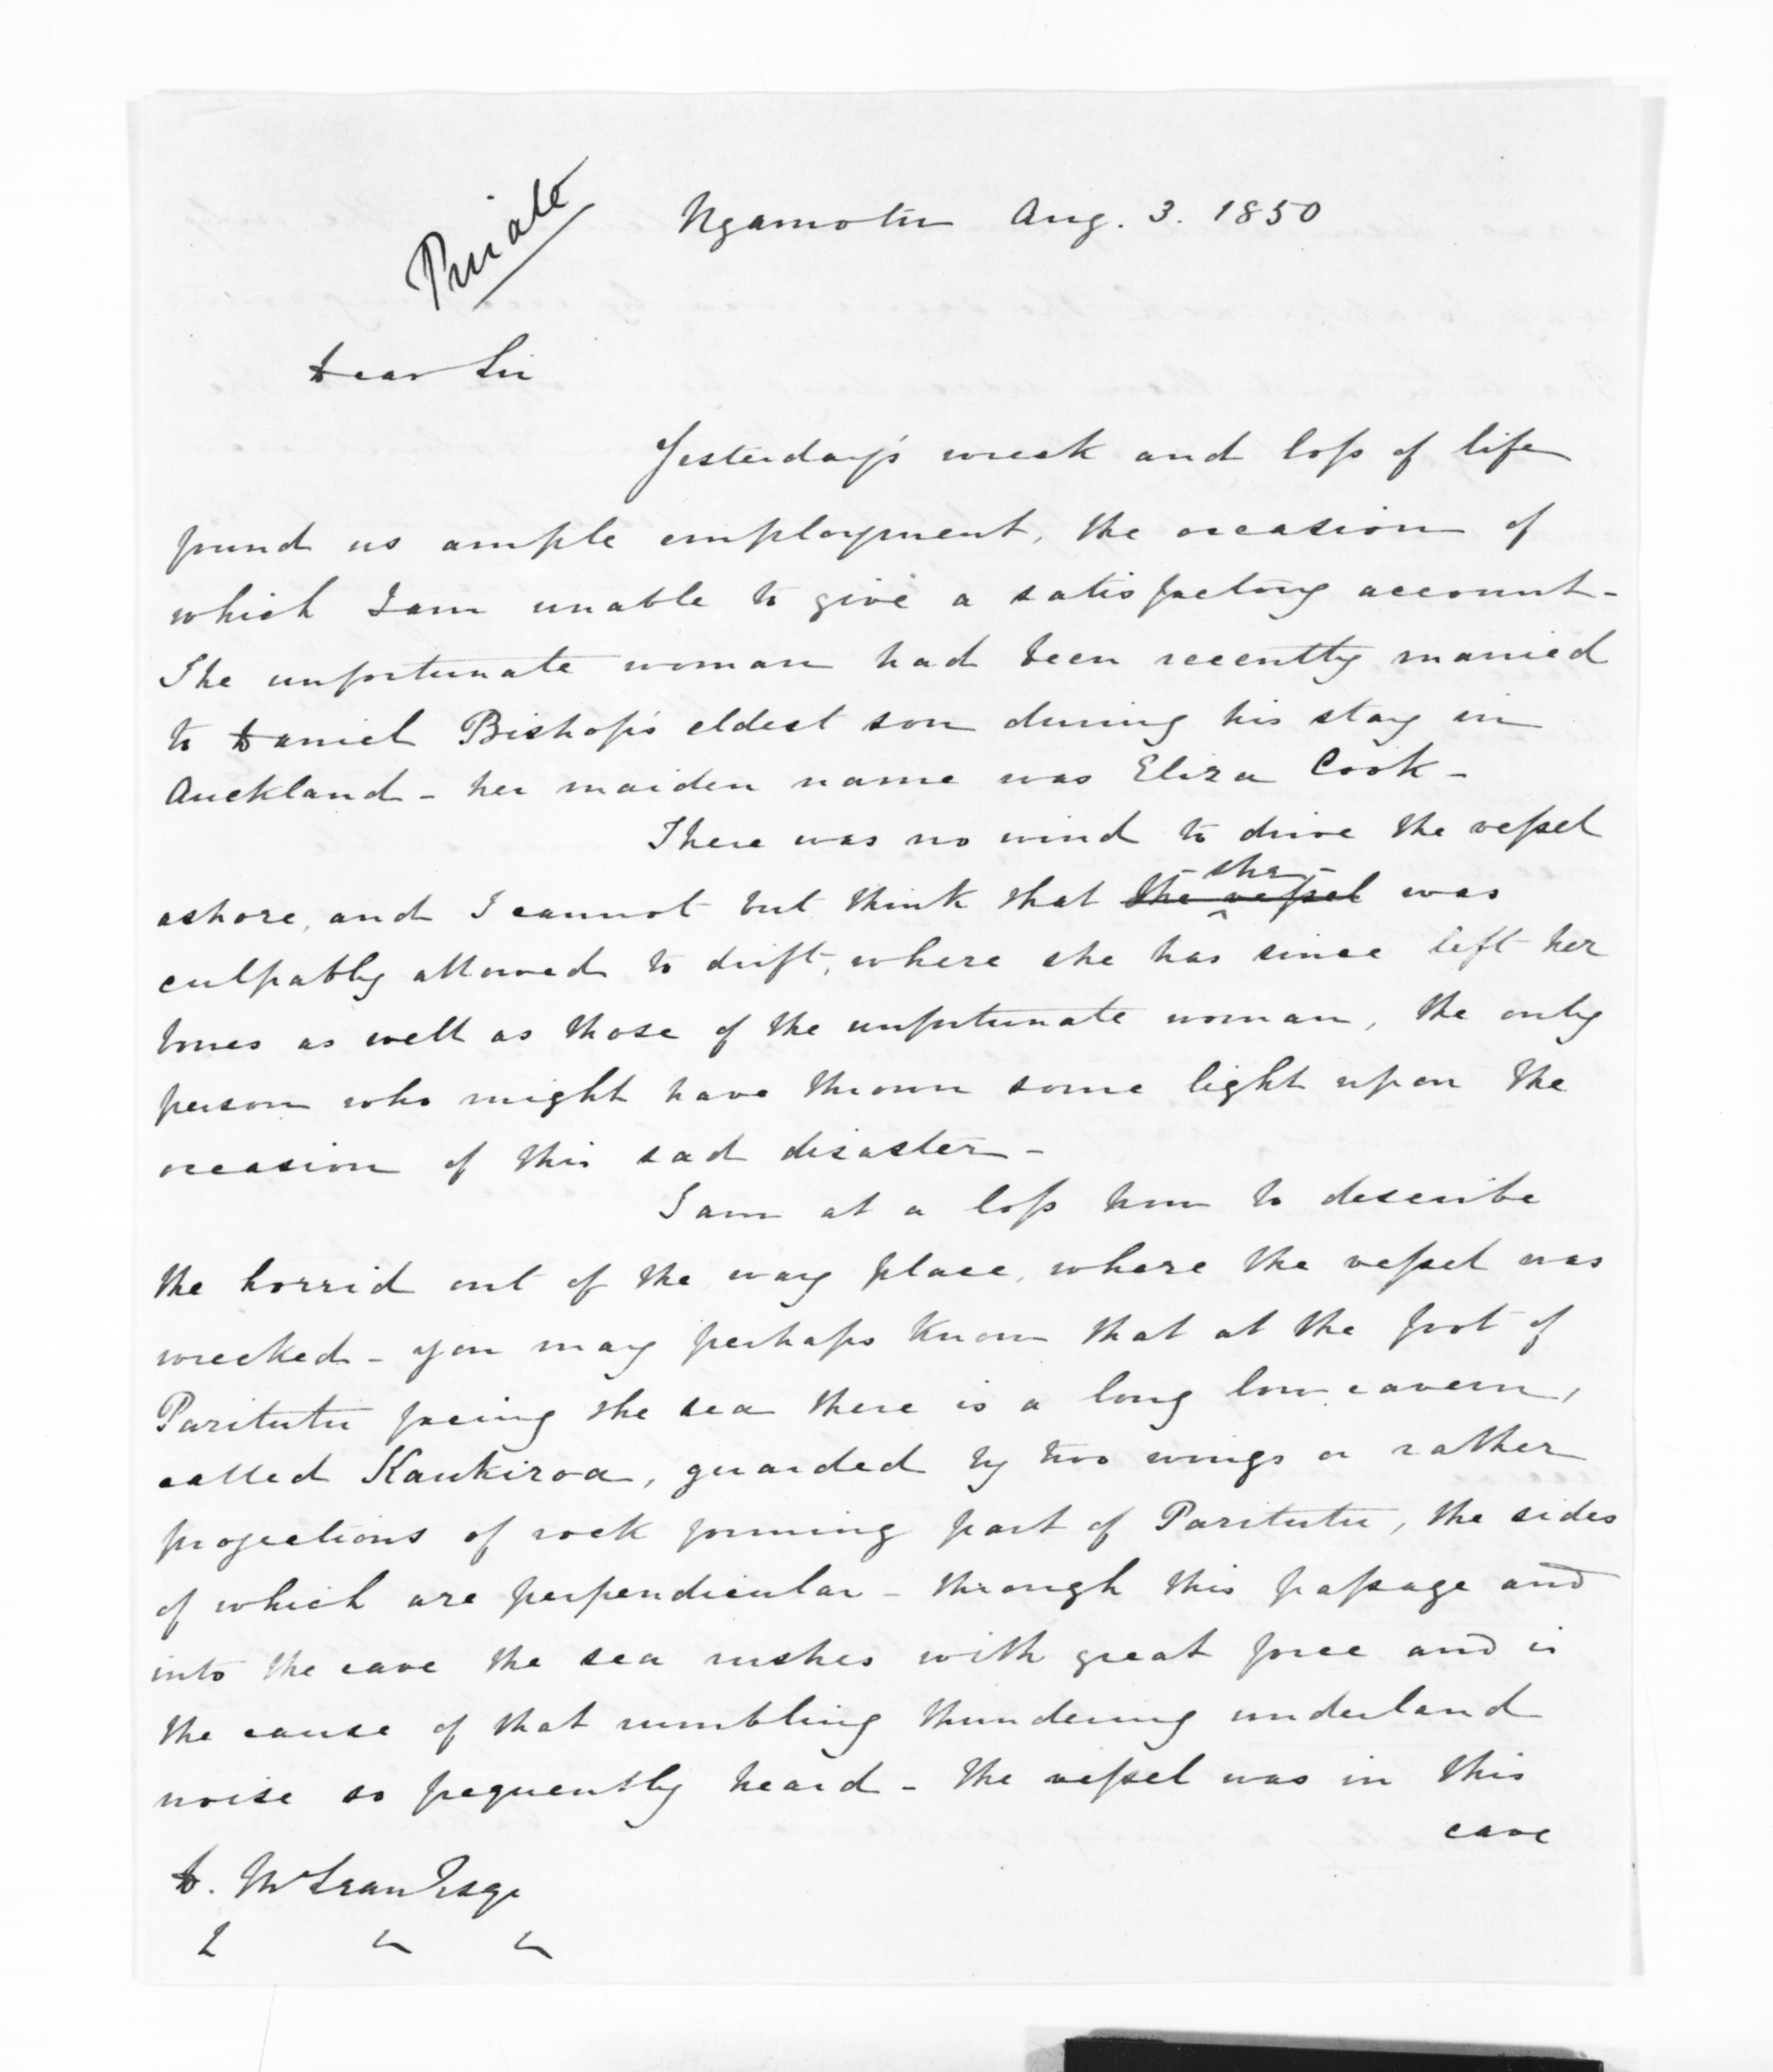 Private
Ngamotu Aug. 3. 1850
Dear Sir
Yesterday's wreck and loss of life
found us ample employment, the occasion of
which I am unable to give a satisfactory account -
The unfortunate woman had been recently married
to Daniel Bishop's eldest son during his stay in
Auckland - her maiden name was Eliza Cook -
There was no wind to drive the vessel
- she -
ashore, and I cannot but think that the vessel was
culpably allowed to drift, where she has since left her
bones as well as those of the unfortunate woman, the only
person who might have thrown some light upon the
occasion of this sad disaster -
I am at a loss how to describe
the horrid out of the way place, where the vessel was
wrecked - you may perhaps know that at the foot of
Paritutu facing the sea there is a long low cavern,
called Kaukiroa, guarded by two wings or rather
projections of rock forming part of Paritutu, the sides
of which are perpendicular - through this passage and
into the cave the sea rushes with great force and is
the cause of that rumbling thundering underland
noise so frequently heard - The vessel was in this
cave
D. McLean Esqe